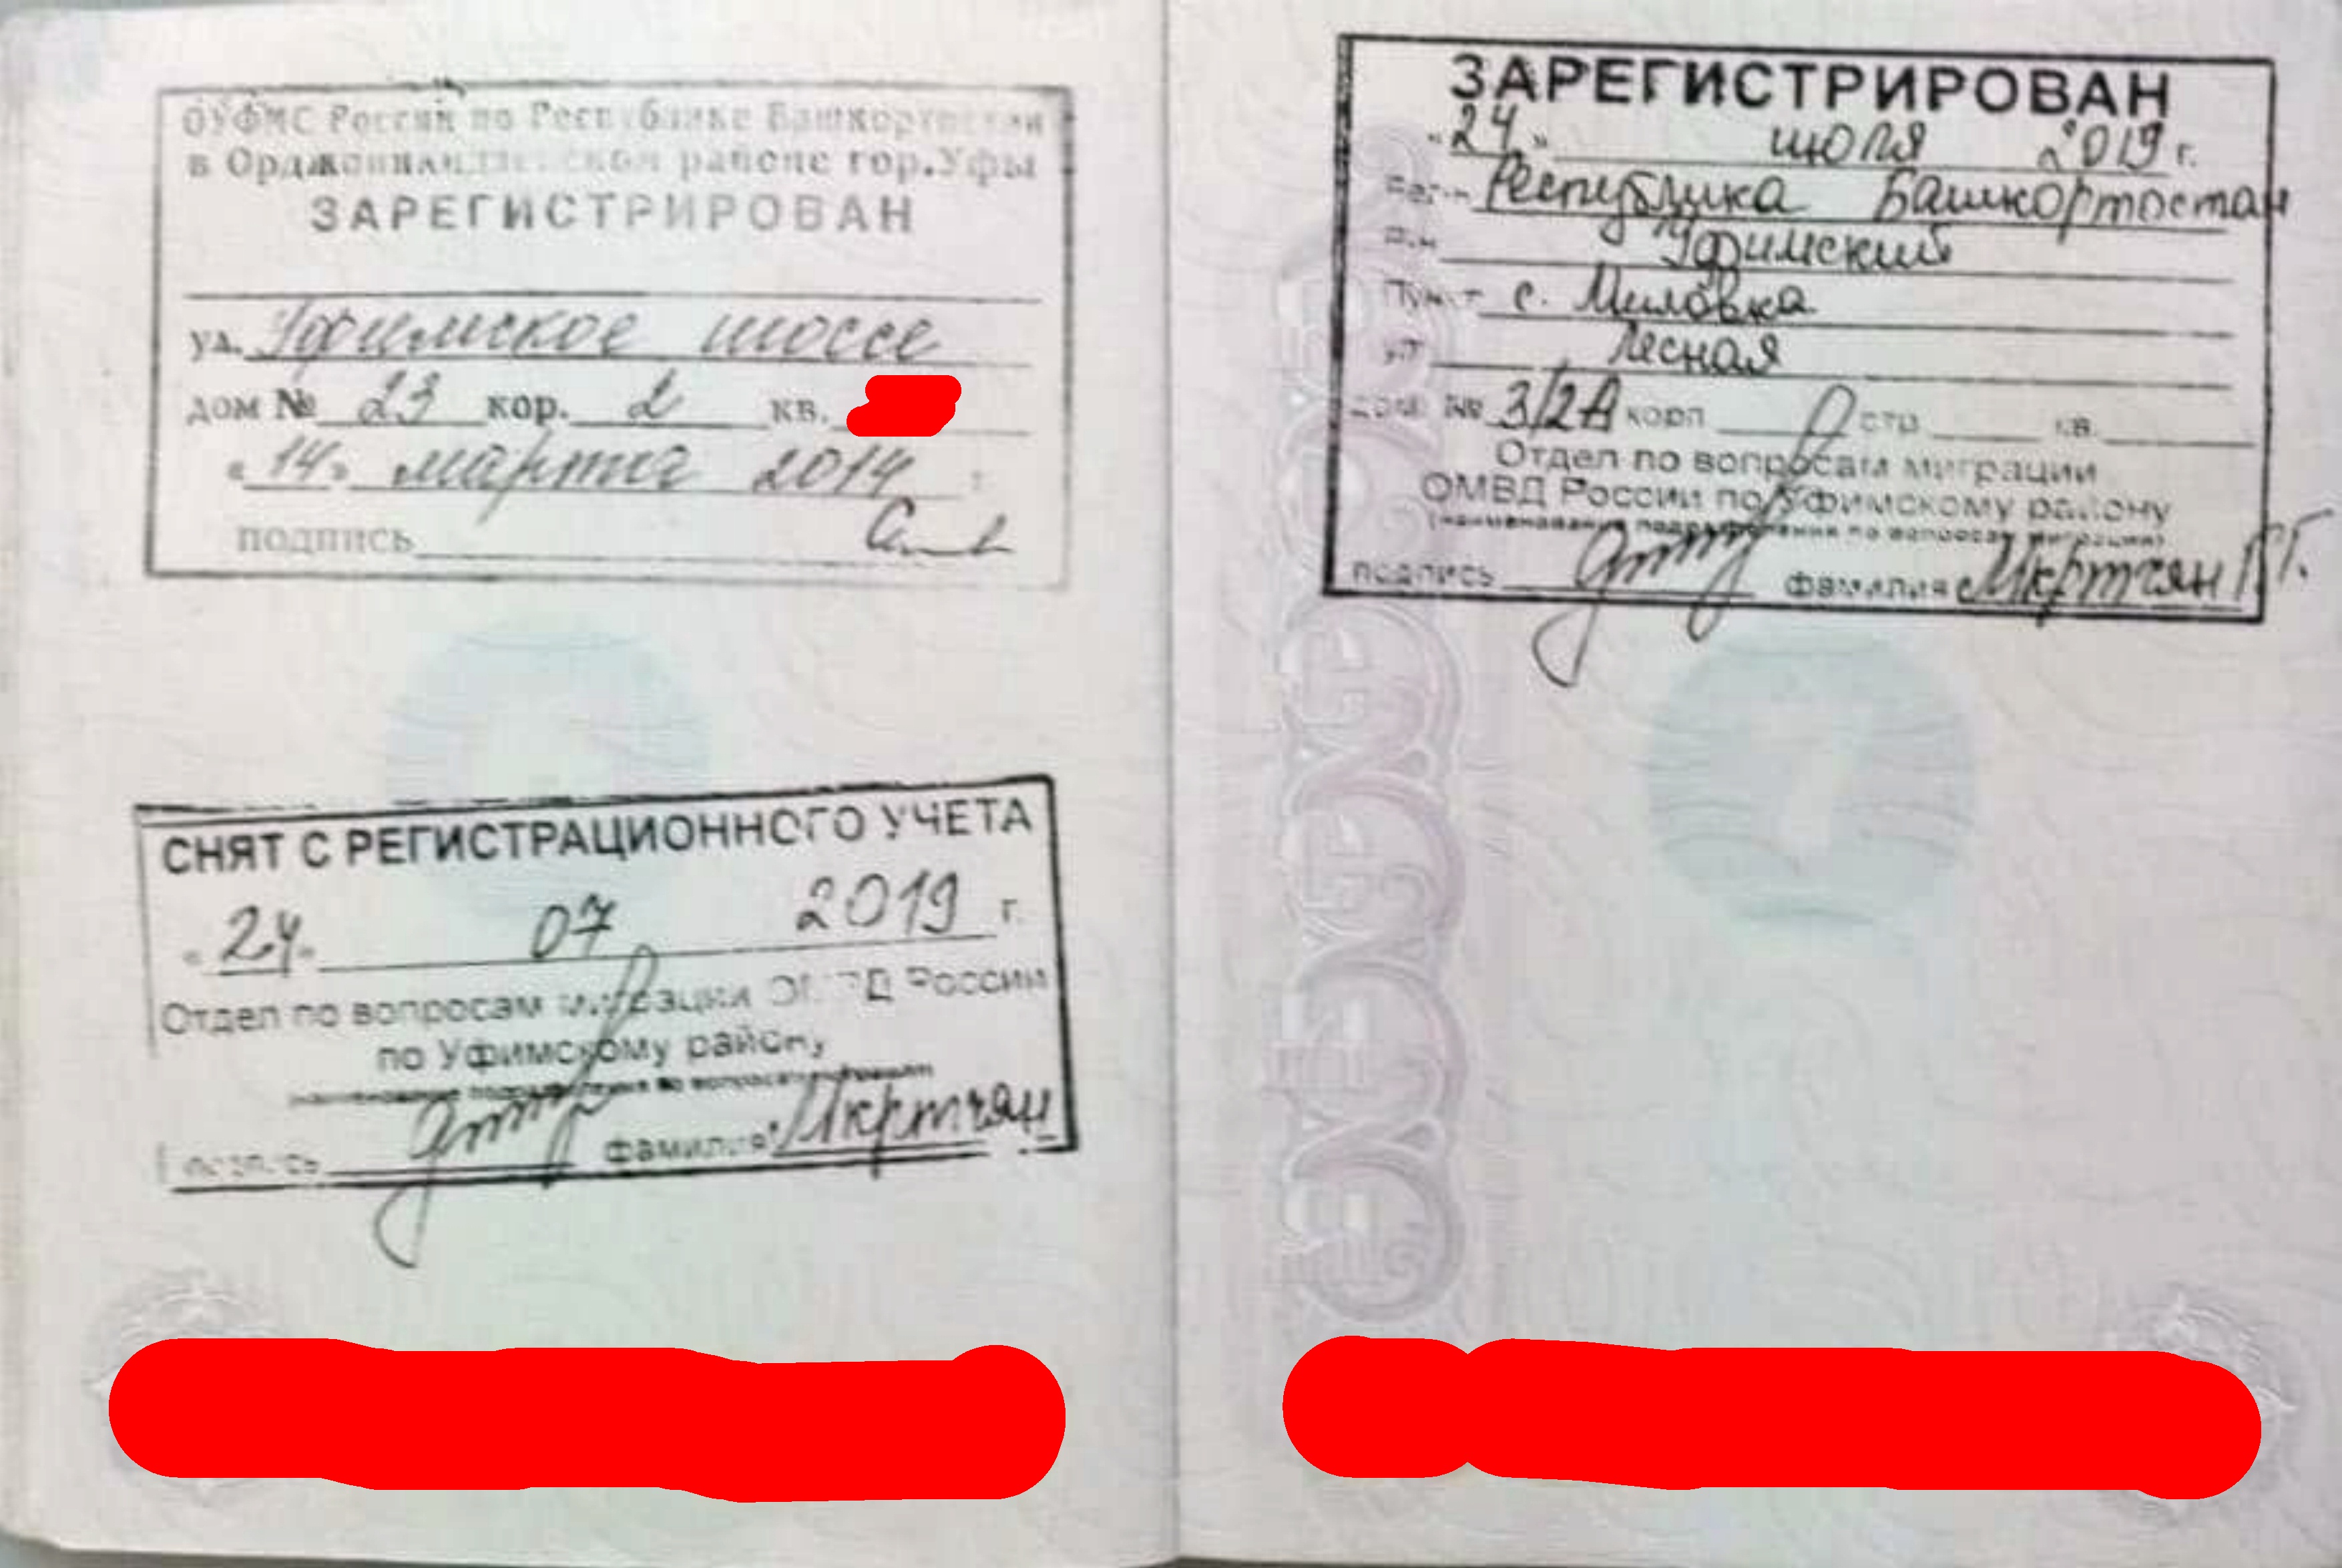 ОУФМС России по Республике Башкортостан
в Орджоникидзевском районе гор.Уфы
ЗАРЕГИСТРИРОВАН
ул. Уфимское шоссе
дом № 23 кор. 2 кв.
«14» марта 2014 г.
подпись
СНЯТ С РЕГИСТРАЦИОННОГО УЧЕТА
«24» 07 2019 г.
Отдел по вопросам миграции ОМВД России
по Уфимскому району
(наименование подразделения по вопросам миграции)
подпись фамилия Мкртчян
ЗАРЕГИСТРИРОВАН
«24» июля 2019 г.
Рег-н Республика Башкортостан
Р-н Уфимский
Пункт с. Миловка
ул. Лесная
дом № 3/2А корп. стр. кв.
Отдел по вопросам миграции
ОМВД России по Уфимскому району
(наименование подразделения по вопросам миграции)
подпись фамилия Мкртчян Г.Г.